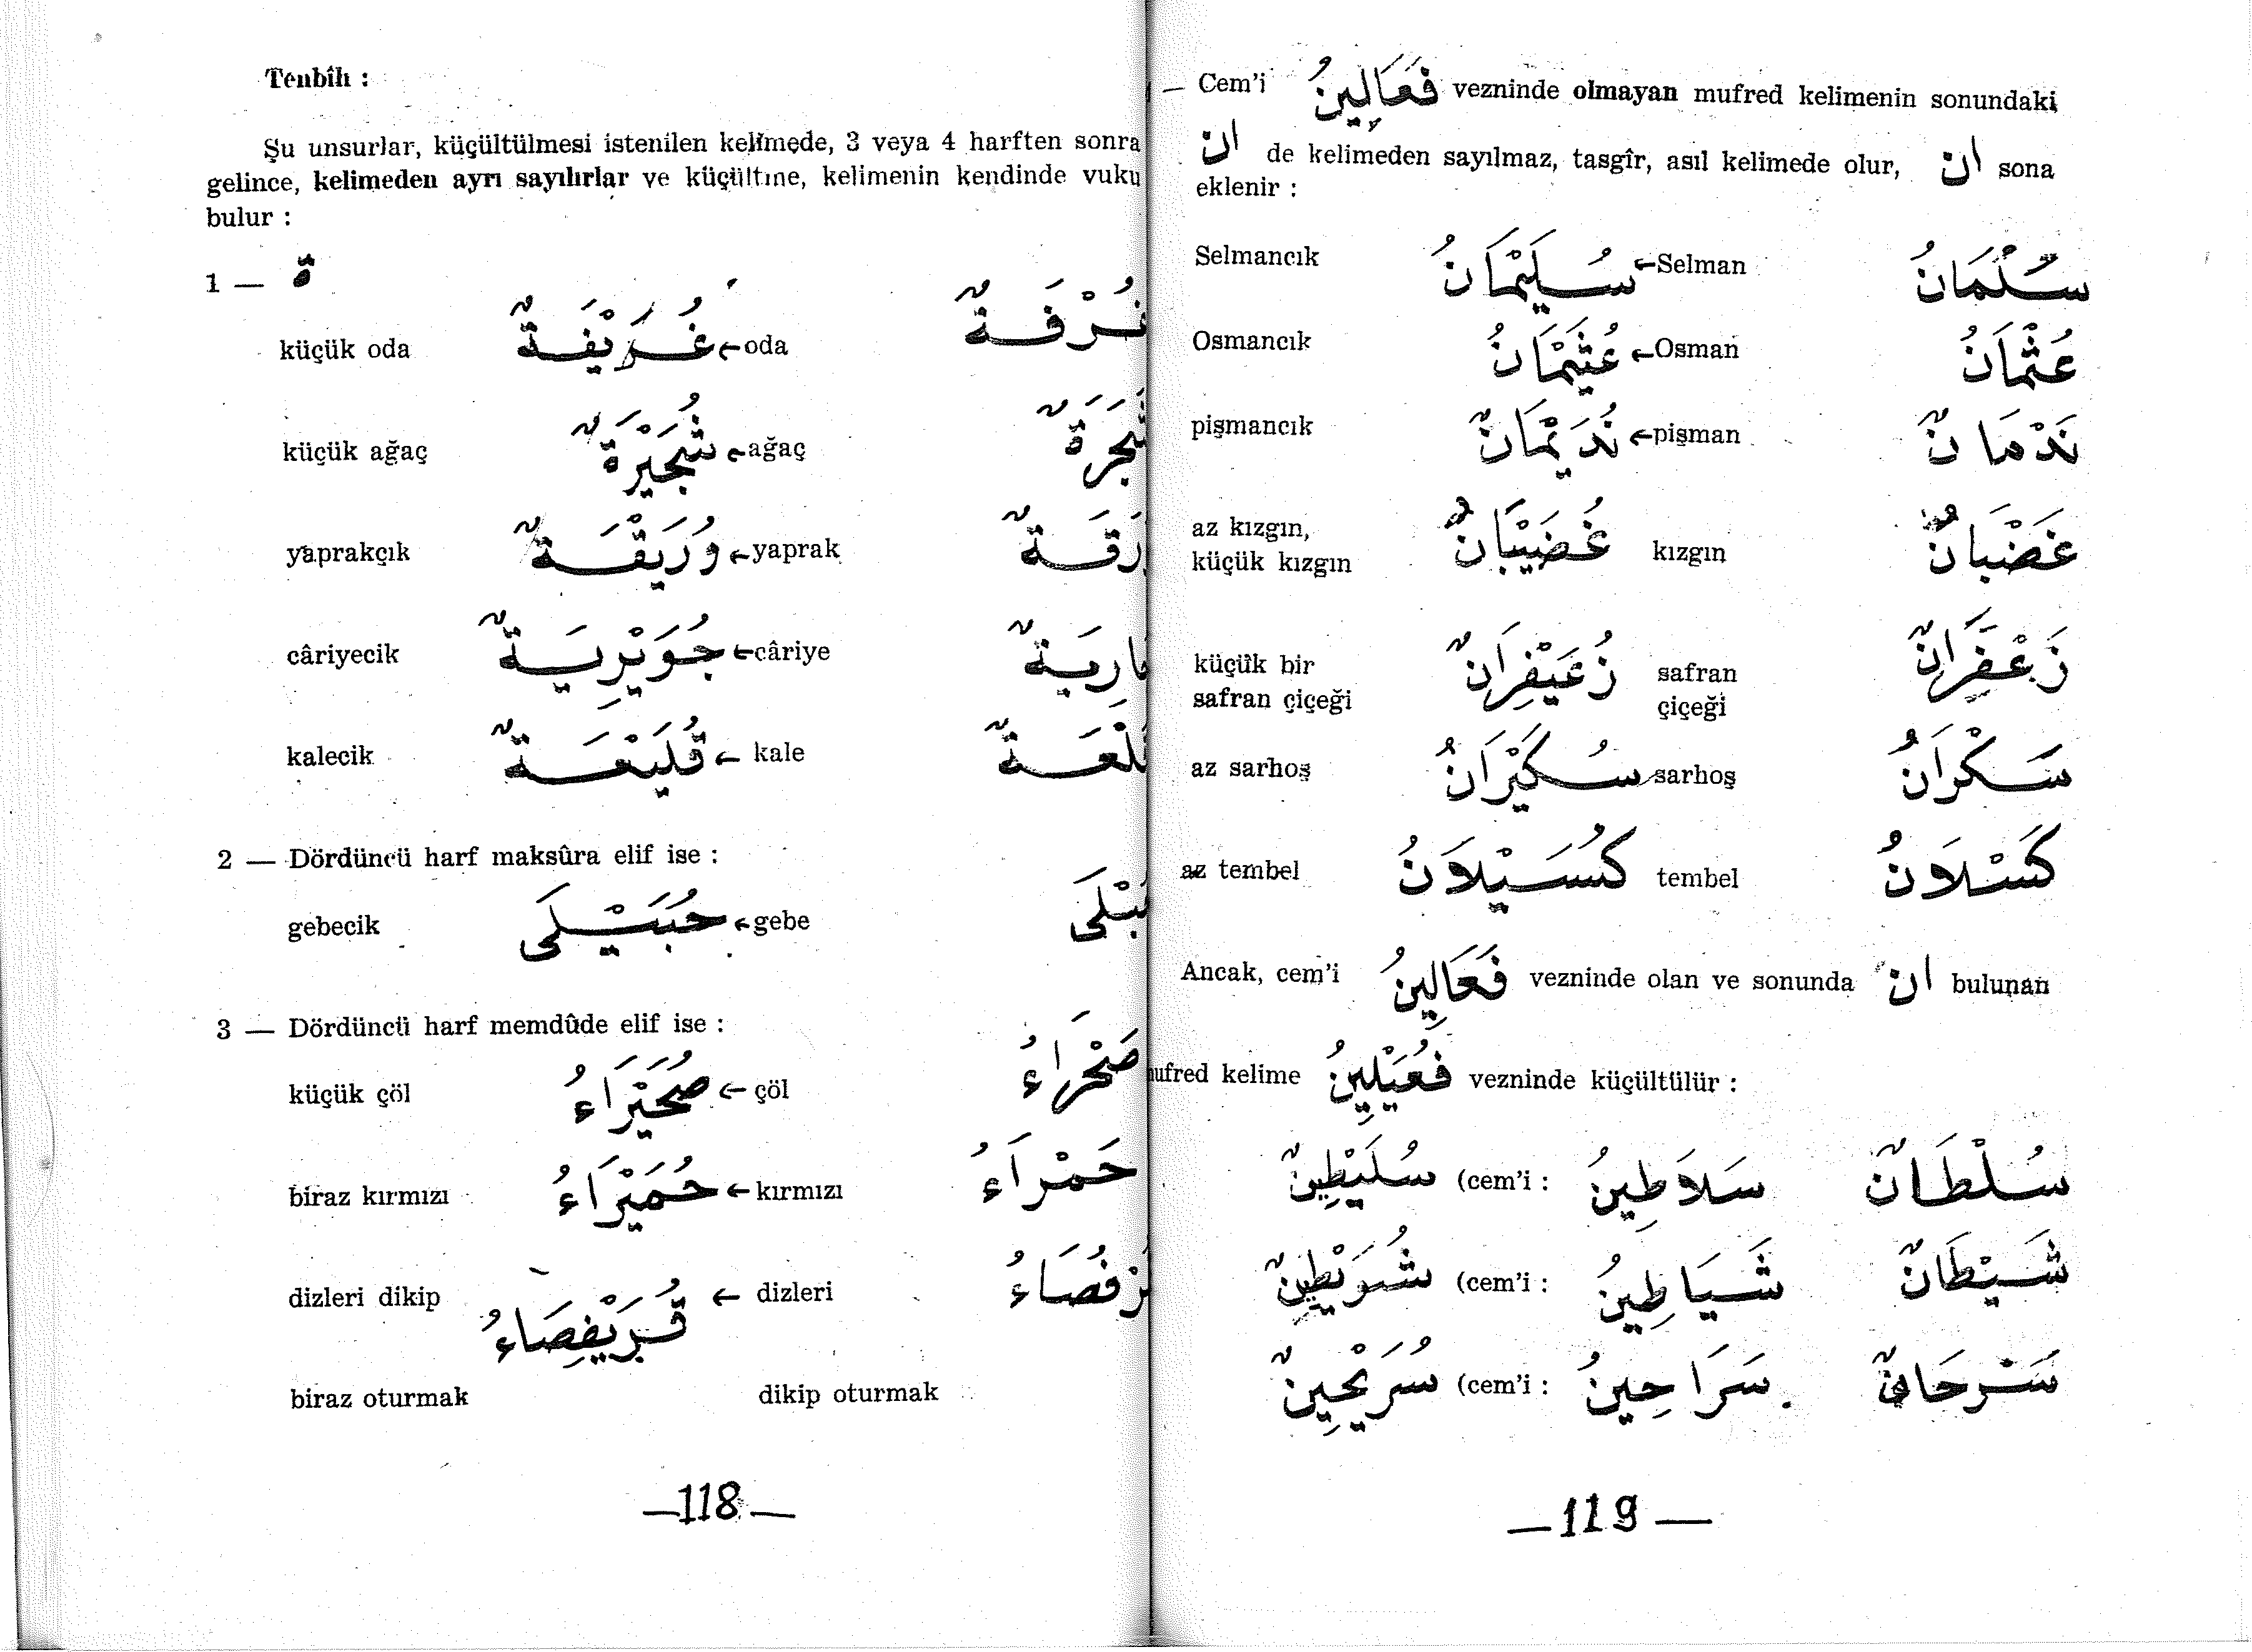 Tenbîh :
Şu unsurlar, küçültülmesi istenilen kelimede, 3 veya 4 harften sonra
gelince, kelimeden ayrı sayılırlar ve küçültme, kelimenin kendinde vuku
bulur :
1 — ة
küçük oda غُرَيْفَةٌ ← oda
küçük ağaç شُجَيْرَةٌ ← ağaç
yaprakçık وُرَيْقَةٌ ← yaprak
câriyecik جُوَيْرِيَةٌ ← câriye
kalecik قُلَيْعَةٌ ← kale
2 — Dördüncü harf maksûra elif ise :
gebecik حُبَيْلَى ← gebe
3 — Dördüncü harf memdûde elif ise :
küçük çöl صُحَيْرَاءُ ← çöl صَحْرَاءُ
biraz kırmızı حُمَيْرَاءُ ← kırmızı حَمْرَاءُ
dizleri dikip قُرَيْفِصَاءُ ← dizleri
biraz oturmak dikip oturmak
—118—
— Cem'i فَعَالِينُ vezninde olmayan mufred kelimenin sonundaki
ان de kelimeden sayılmaz, tasgîr, asıl kelimede olur, ان sona
eklenir :
Selmancık سُلَيْمَانُ ← Selman سَلْمَانُ
Osmancık عُثَيْمَانُ ← Osman عُثْمَانُ
pişmancık نُدَيْمَانٌ ← pişman نَدْمَانٌ
az kızgın,
küçük kızgın غُضَيْبَانُ kızgın غَضْبَانُ
küçük bir زُعَيْفِرَانٌ safran زَعْفَرَانٌ
safran çiçeği çiçeği
az sarhoş سُكَيْرَانُ sarhoş سَكْرَانُ
az tembel كُسَيْلَانُ tembel كَسْلَانُ
Ancak, cem'i فَعَالِينُ vezninde olan ve sonunda ان bulunan
mufred kelime فُعَيْلِينُ vezninde küçültülür :
سُلَيْطِينٌ (cem'i : سَلَاطِينُ سُلْطَانٌ
شُوَيْطِينٌ (cem'i : شَيَاطِينُ شَيْطَانٌ
سُرَيْحِينٌ (cem'i : سَرَاحِينُ سَرْحَانٌ
—119—